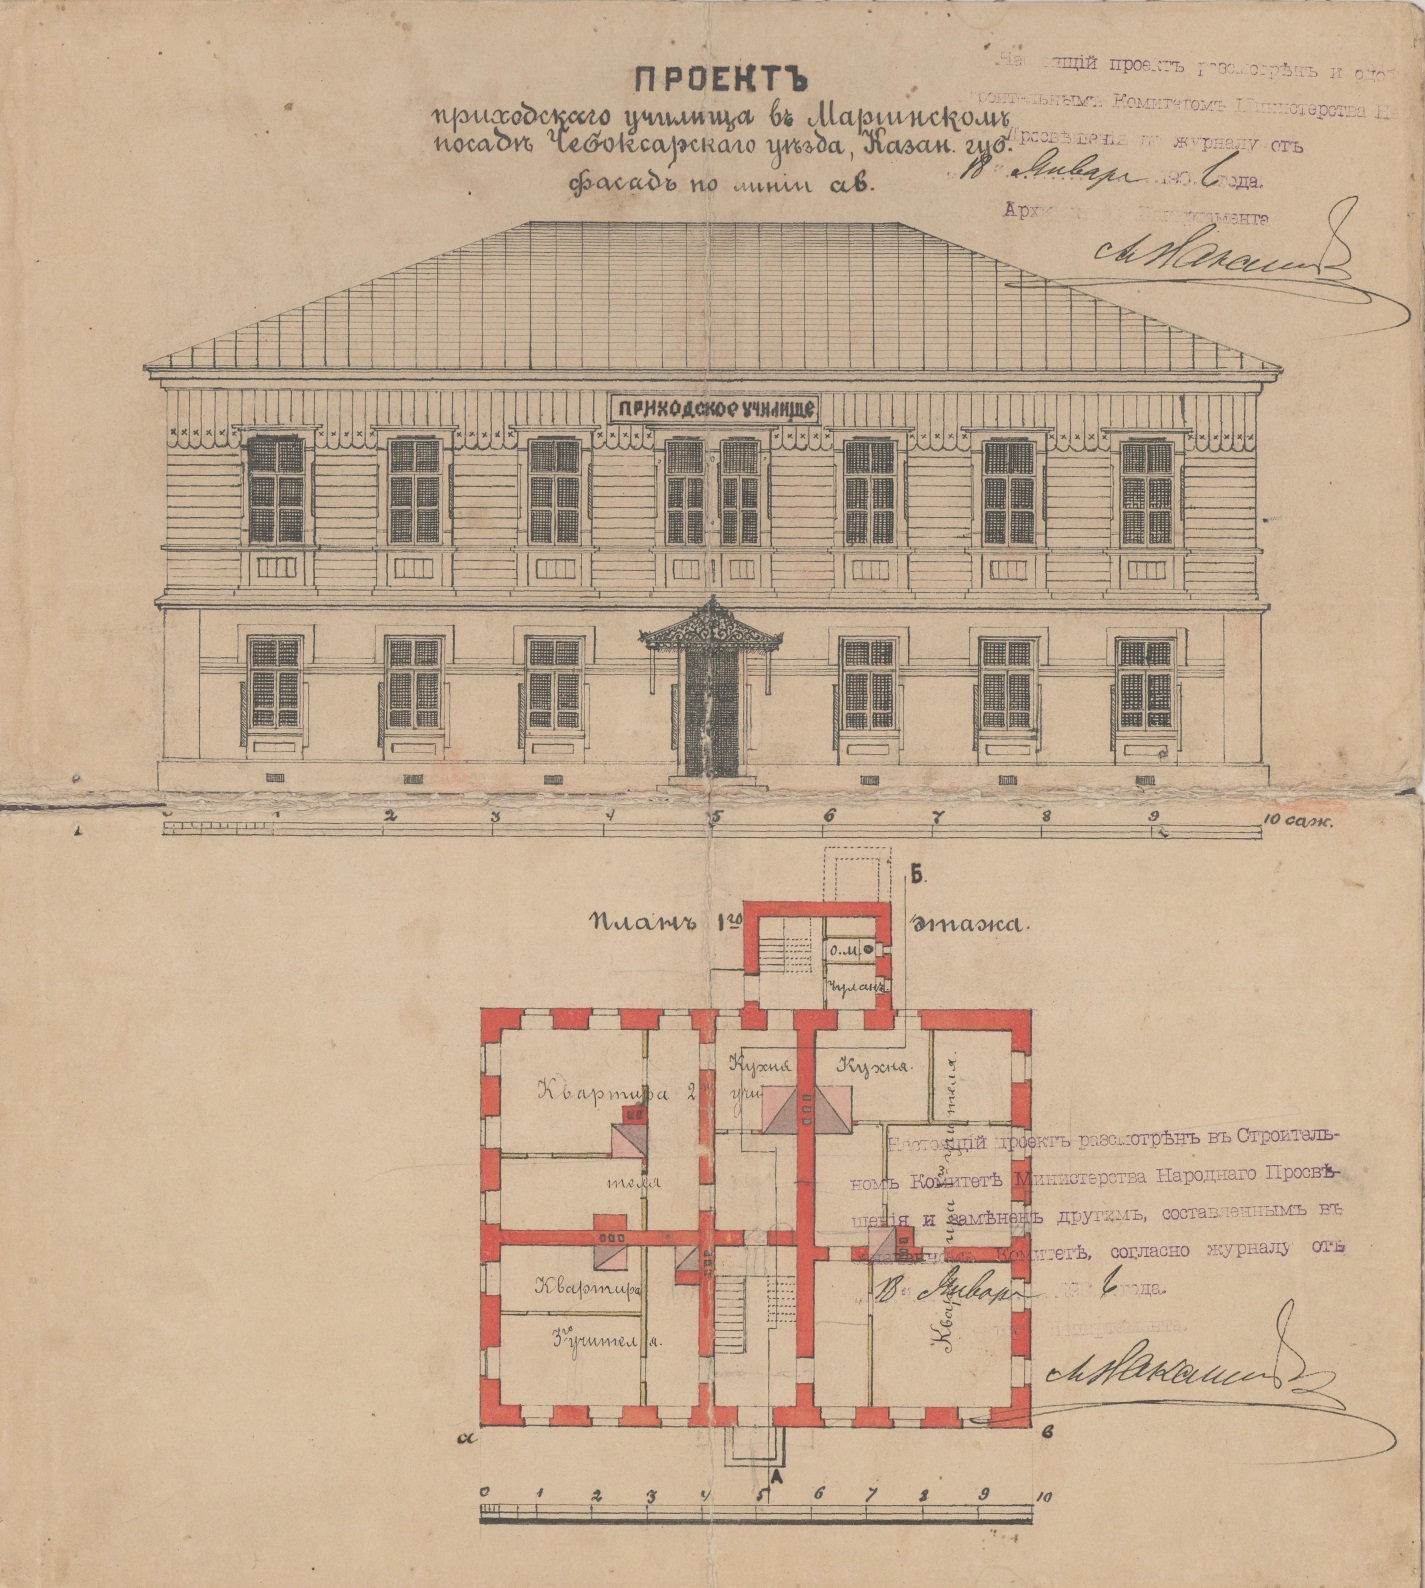 ПРОЕКТЪ
приходскаго училища въ Маріинскомъ
посадѣ Чебоксарскаго уѣзда, Казан. губ.
фасадъ по линіи ав.
Настоящій проектъ разсмотрѣнъ и
Комитетомъ Министерства
Просвѣщенія по журналу отъ
18 Января года.
Архитекторъ Департамента
ПРИХОДСКОЕ УЧИЛИЩЕ
1 2 3 4 5 6 7 8 9 10 саж.
Б.
Планъ 1го этажа.
о.м.
Чуланъ.
Кухня
учи
Кухня.
Квартира 2го
теля
Квартира учителя.
Настоящій проектъ разсмотрѣнъ въ Строитель-
номъ Комитетѣ Министерства Народнаго Просвѣ-
щенія и замѣненъ другимъ, составленнымъ въ
Комитетѣ, согласно журналу отъ
18 Января года.
Департамента.
Квартира
3го учителя.
а
в
А
0 1 2 3 4 5 6 7 8 9 10